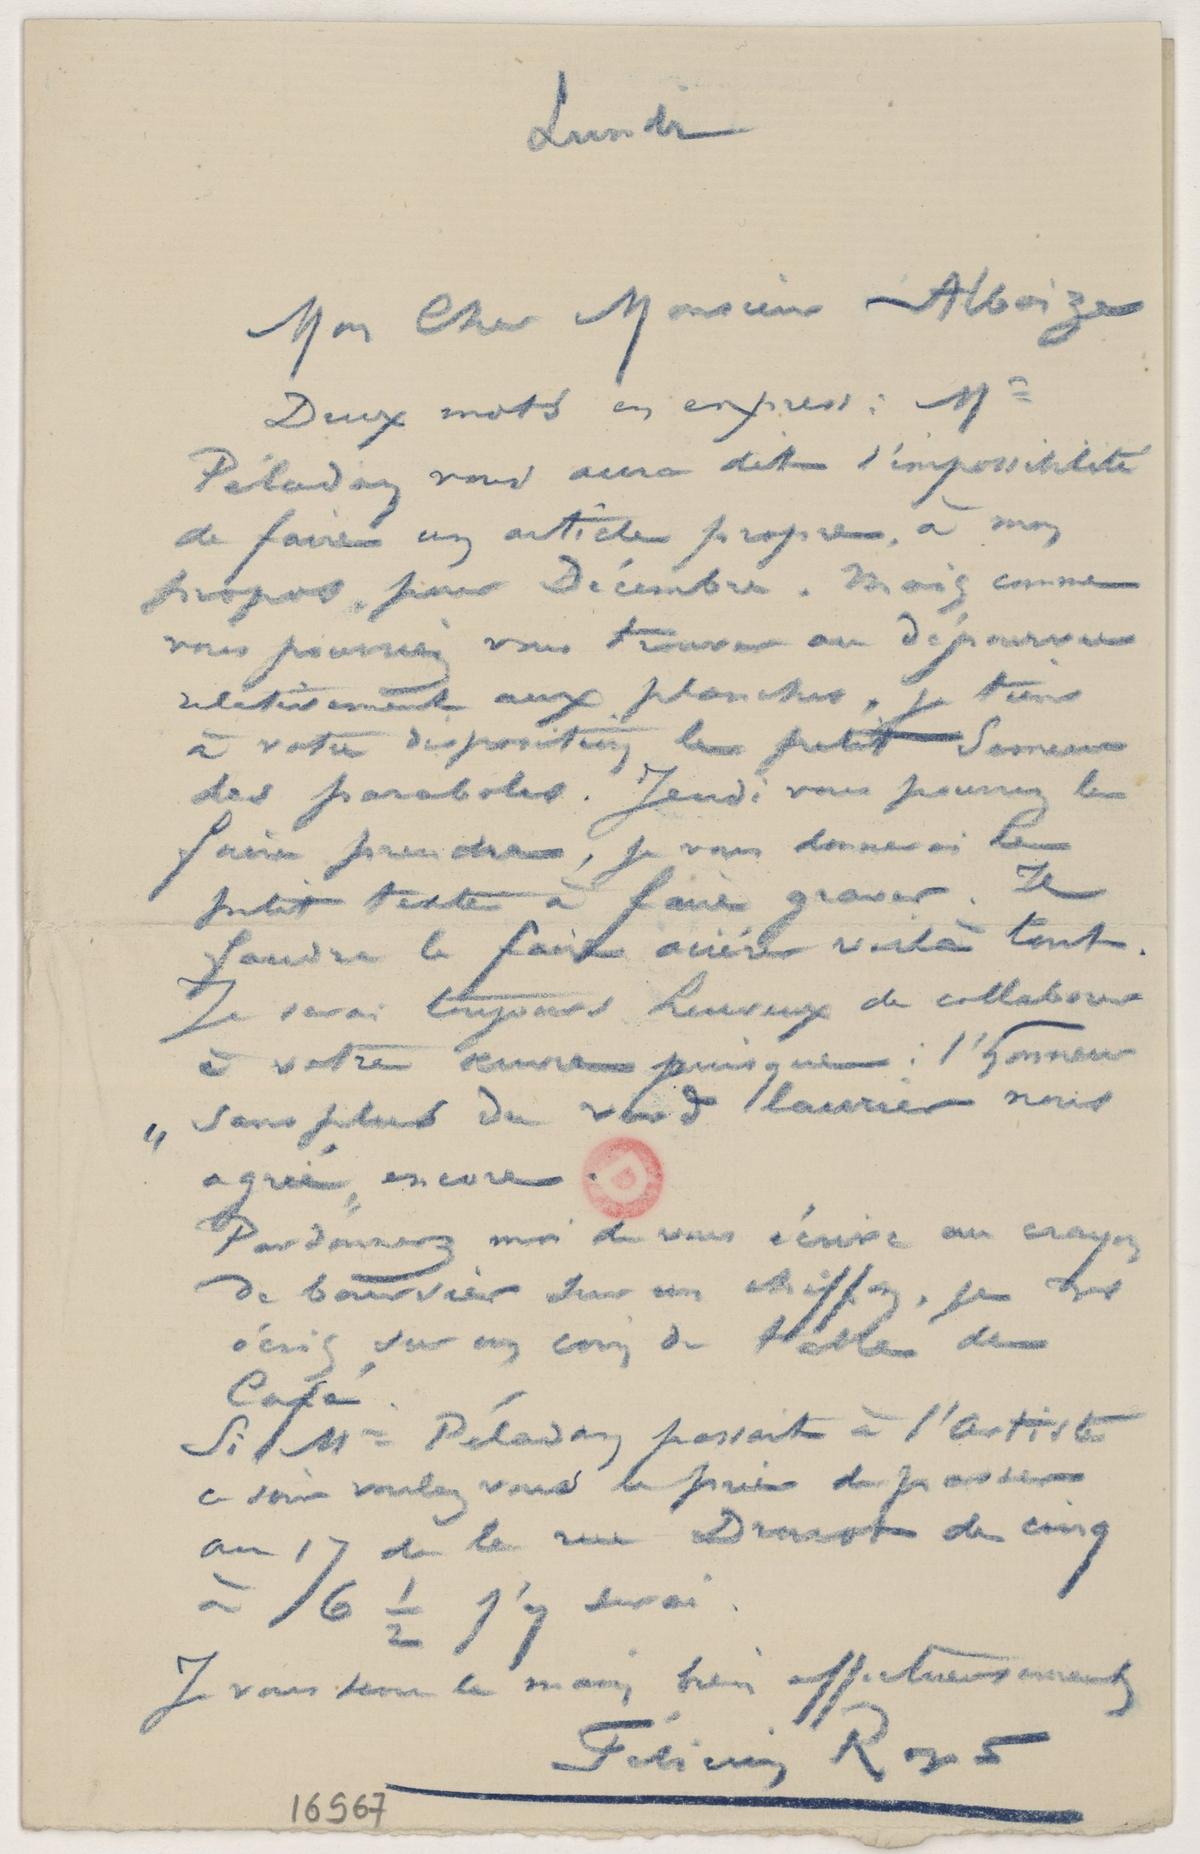 Lundi
Mon Cher Monsieur Alboize
Deux mots en express : Mr
Péladan vous aura dit l'impossibilité
de faire un article propre, à mon
propos, pour Décembre. Mais comme
vous pourriez vous trouver au dépourvu
relativement aux planches, je tiens
à votre disposition le petit Semeur
des paraboles. Jeudi vous pourrez le
faire prendre, je vous donnerai le
petit texte à faire graver. Il
faudra le faire aciérer voilà tout.
Je serai toujours heureux de collaborer
à votre œuvre puisque : l'honneur
" sans plus du verd laurier nous
agrée, " encore.
D
Pardonnez moi de vous écrire au crayon
de boursier sur un chiffon, je vous
écris sur un coin de table de
Café.
Si Mr Péladan passait à l'Artiste
ce soir voulez vous le prier de passer
au 17 de la rue Drouot de cinq
à 6 1/2 j'y serai.
Je vous serre la main bien affectueusement
Félicien Rops
16567